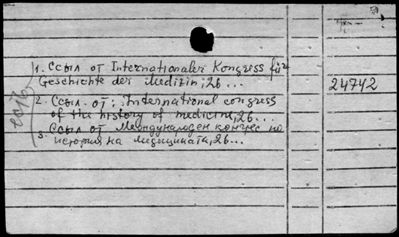 1. Ссыл. от Internationaler Kongress für
Geschichte der Medizin, 26...
24742
2. Ссыл. от: International congress
of the history of medicine, 26...
3. Ссыл от Международен конгрес на
история на медицината, 26...